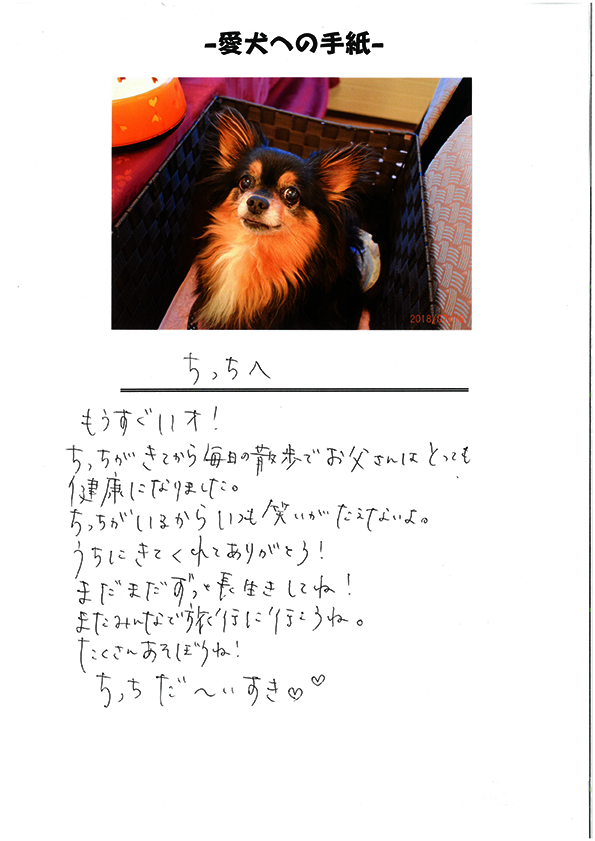 -愛犬への手紙-
2018
ちっちへ
もうすぐ11才!
ちっちがきてから毎日の散歩でお父さんはとっても
健康になりました。
ちっちがいるからいつも笑いがたえないよ。
うちにきてくれてありがとう!
まだまだずっと長生きしてね!
またみんなで旅行に行こうね。
たくさんあそぼうね!
ちっちだ〜いすき♡♡